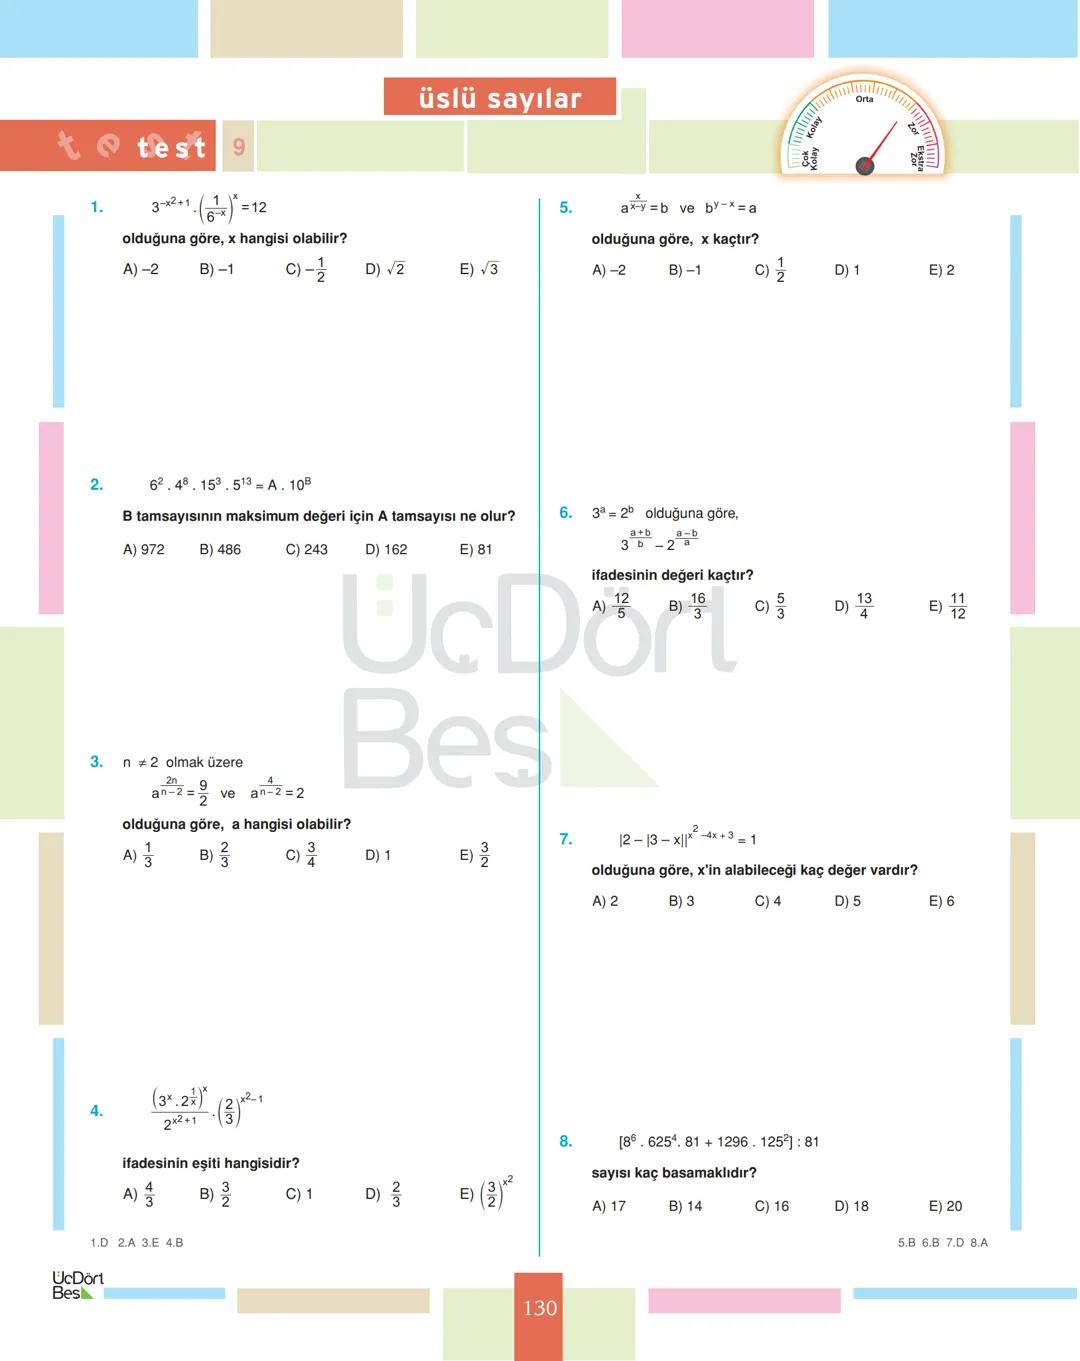 üslü sayılar
Çok Kolay
Kolay
Orta
Zor
Ekstra Zor
test
test 9
1. 3^(–x²+1) . (1/6^(–x))^x = 12
olduğuna göre, x hangisi olabilir?
A) –2 B) –1 C) –1/2 D) √2 E) √3
2. 6² . 4⁸ . 15³ . 5¹³ = A . 10^B
B tamsayısının maksimum değeri için A tamsayısı ne olur?
A) 972 B) 486 C) 243 D) 162 E) 81
3. n ≠ 2 olmak üzere
a^(2n/(n–2)) = 9/2 ve a^(4/(n–2)) = 2
olduğuna göre, a hangisi olabilir?
A) 1/3 B) 2/3 C) 3/4 D) 1 E) 3/2
4. (3^x . 2^(1/x))^x / 2^(x²+1) . (2/3)^(x²–1)
ifadesinin eşiti hangisidir?
A) 4/3 B) 3/2 C) 1 D) 2/3 E) (3/2)^(x²)
1.D 2.A 3.E 4.B
5. a^(x/(x–y)) = b ve b^(y–x) = a
olduğuna göre, x kaçtır?
A) –2 B) –1 C) 1/2 D) 1 E) 2
6. 3^a = 2^b olduğuna göre,
3^((a+b)/b) – 2^((a–b)/a)
ifadesinin değeri kaçtır?
A) 12/5 B) 16/3 C) 5/3 D) 13/4 E) 11/12
7. |2 – |3 – x||^(x²–4x+3) = 1
olduğuna göre, x'in alabileceği kaç değer vardır?
A) 2 B) 3 C) 4 D) 5 E) 6
8. [8⁶ . 625⁴ . 81 + 1296 . 125²] : 81
sayısı kaç basamaklıdır?
A) 17 B) 14 C) 16 D) 18 E) 20
5.B 6.B 7.D 8.A
ÜçDört
Beş
ÜçDört
Beş
130